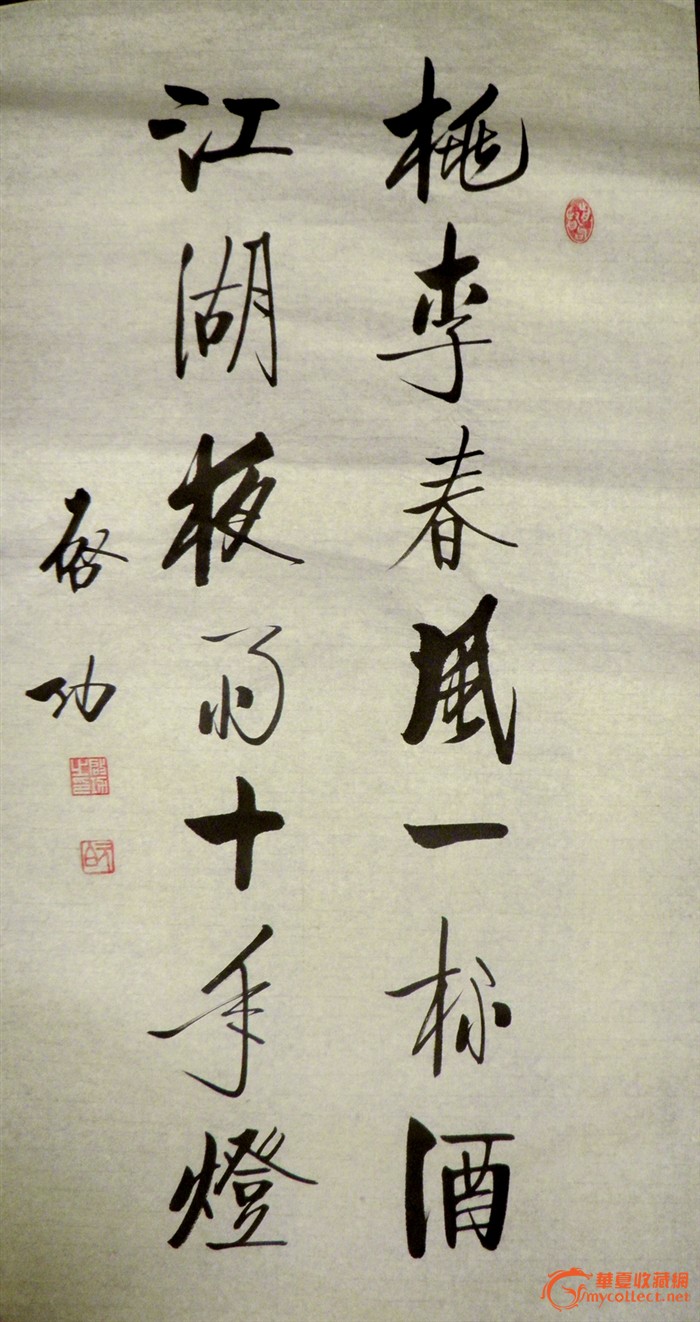 桃李春風一杯酒
江湖夜雨十年燈
启功
元白
華夏收藏網
mycollect.net